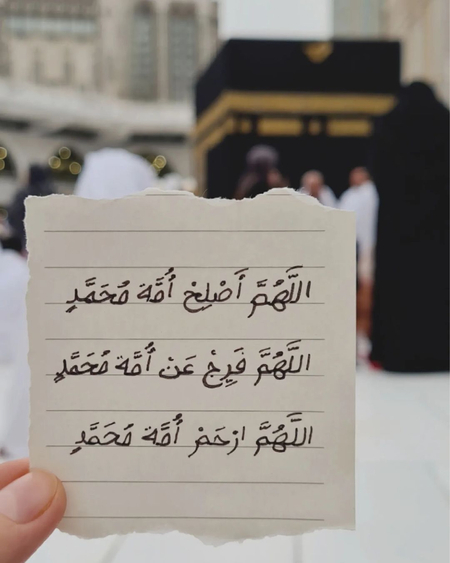 اللَّهُمَّ أَصْلِحْ أُمَّةَ مُحَمَّدٍ
اللَّهُمَّ فَرِّجْ عَنْ أُمَّة مُحَمَّدٍ
اللَّهُمَّ ارْحَمْ أُمَّة مُحَمَّدٍ